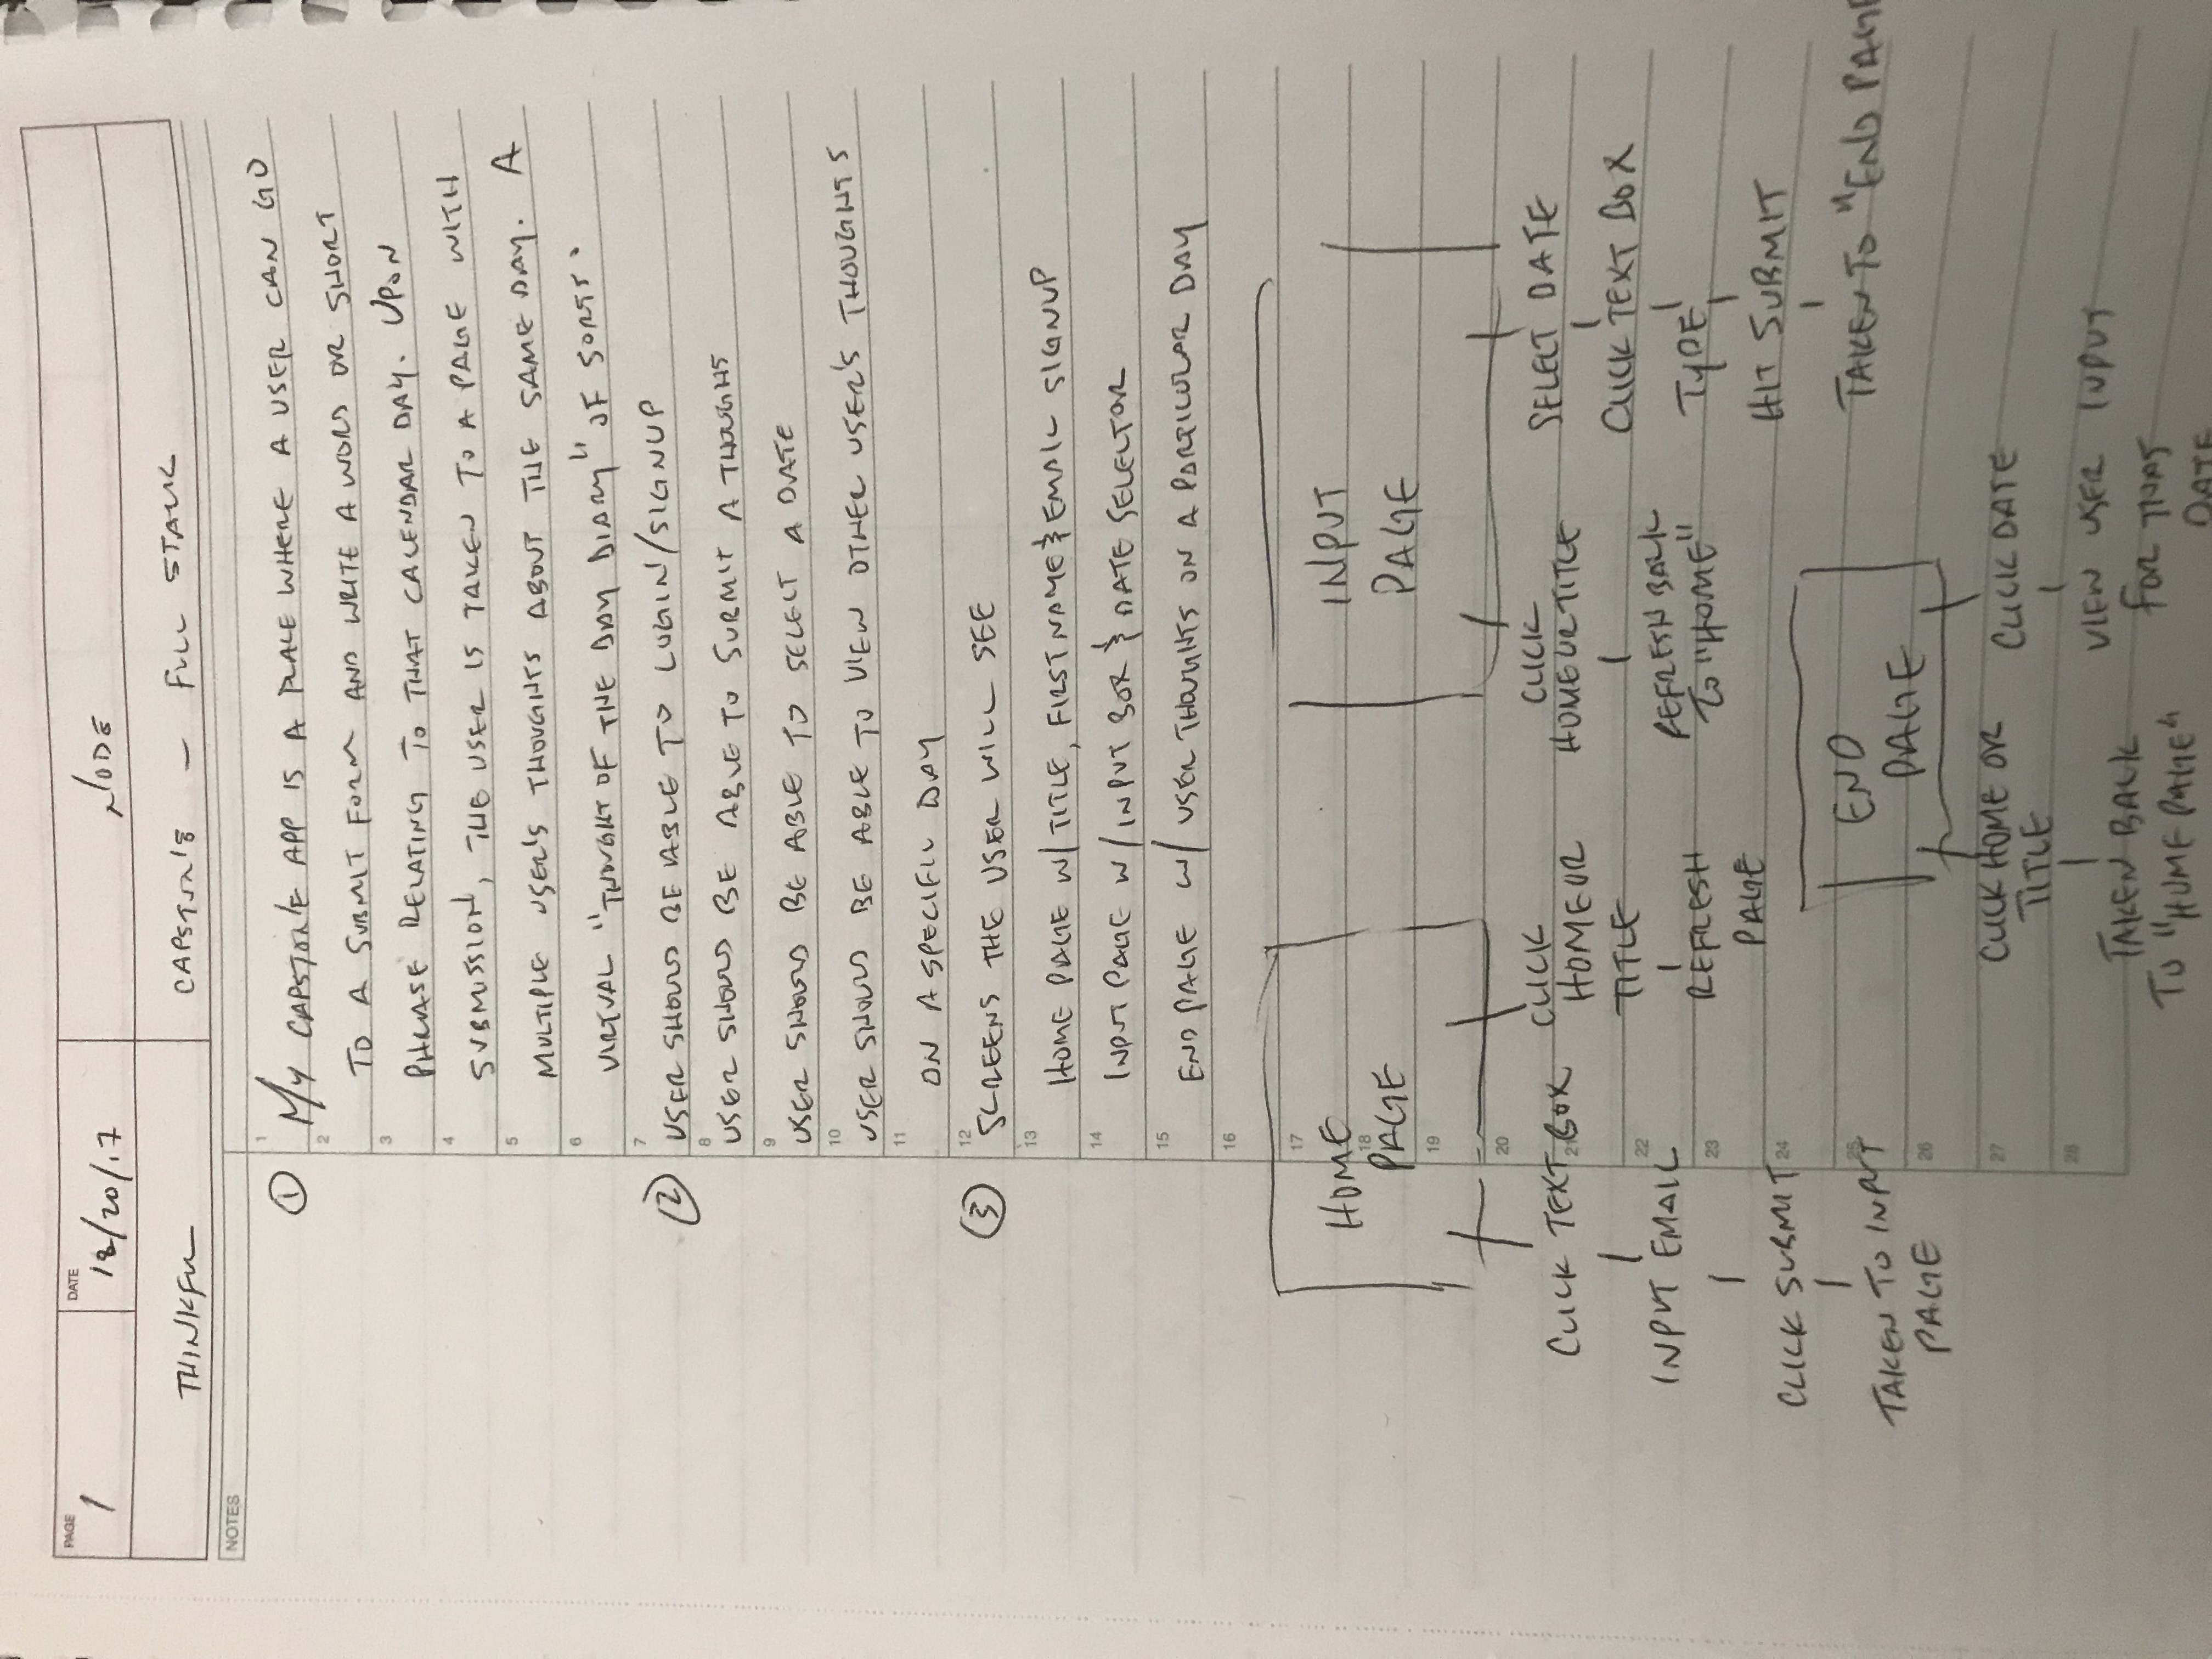 PAGE
1
DATE
12/20/17
NODE
THINKFUL
CAPSTONE — FULL STACK
NOTES
① 1 MY CAPSTONE APP IS A PLACE WHERE A USER CAN GO
2 TO A SUBMIT FORM AND WRITE A WORD OR SHORT
3 PHRASE RELATING TO THAT CALENDAR DAY. UPON
4 SUBMISSION, THE USER IS TAKEN TO A PAGE WITH
5 MULTIPLE USER'S THOUGHTS ABOUT THE SAME DAY. A
6 VIRTUAL "THOUGHT OF THE DAY DIARY" OF SORTS.
② 7 USER SHOULD BE ABLE TO LOGIN/SIGNUP
8 USER SHOULD BE ABLE TO SUBMIT A THOUGHT
9 USER SHOULD BE ABLE TO SELECT A DATE
10 USER SHOULD BE ABLE TO VIEW OTHER USER'S THOUGHTS
11 ON A SPECIFIC DAY
③ 12 SCREENS THE USER WILL SEE
13 HOME PAGE W/ TITLE, FIRST NAME & EMAIL SIGNUP
14 INPUT PAGE W/ INPUT BOX & DATE SELECTOR
15 END PAGE W/ USER THOUGHTS ON A PARTICULAR DAY
16
17
HOME
18
PAGE
19
20
CLICK TEXT BOX
21
INPUT EMAIL
22
23
CLICK SUBMIT
24
TAKEN TO INPUT
25
PAGE
26
CLICK
HOME OR
TITLE
REFRESH
PAGE
INPUT
PAGE
CLICK
HOME OR TITLE
REFRESH BACK
TO "HOME"
SELECT DATE
CLICK TEXT BOX
TYPE
HIT SUBMIT
TAKEN TO "END PAGE
END
PAGE
27
CLICK HOME OR
TITLE
28
TAKEN BACK
TO "HOME PAGE"
CLICK DATE
VIEW USER INPUT
FOR THAT
DATE